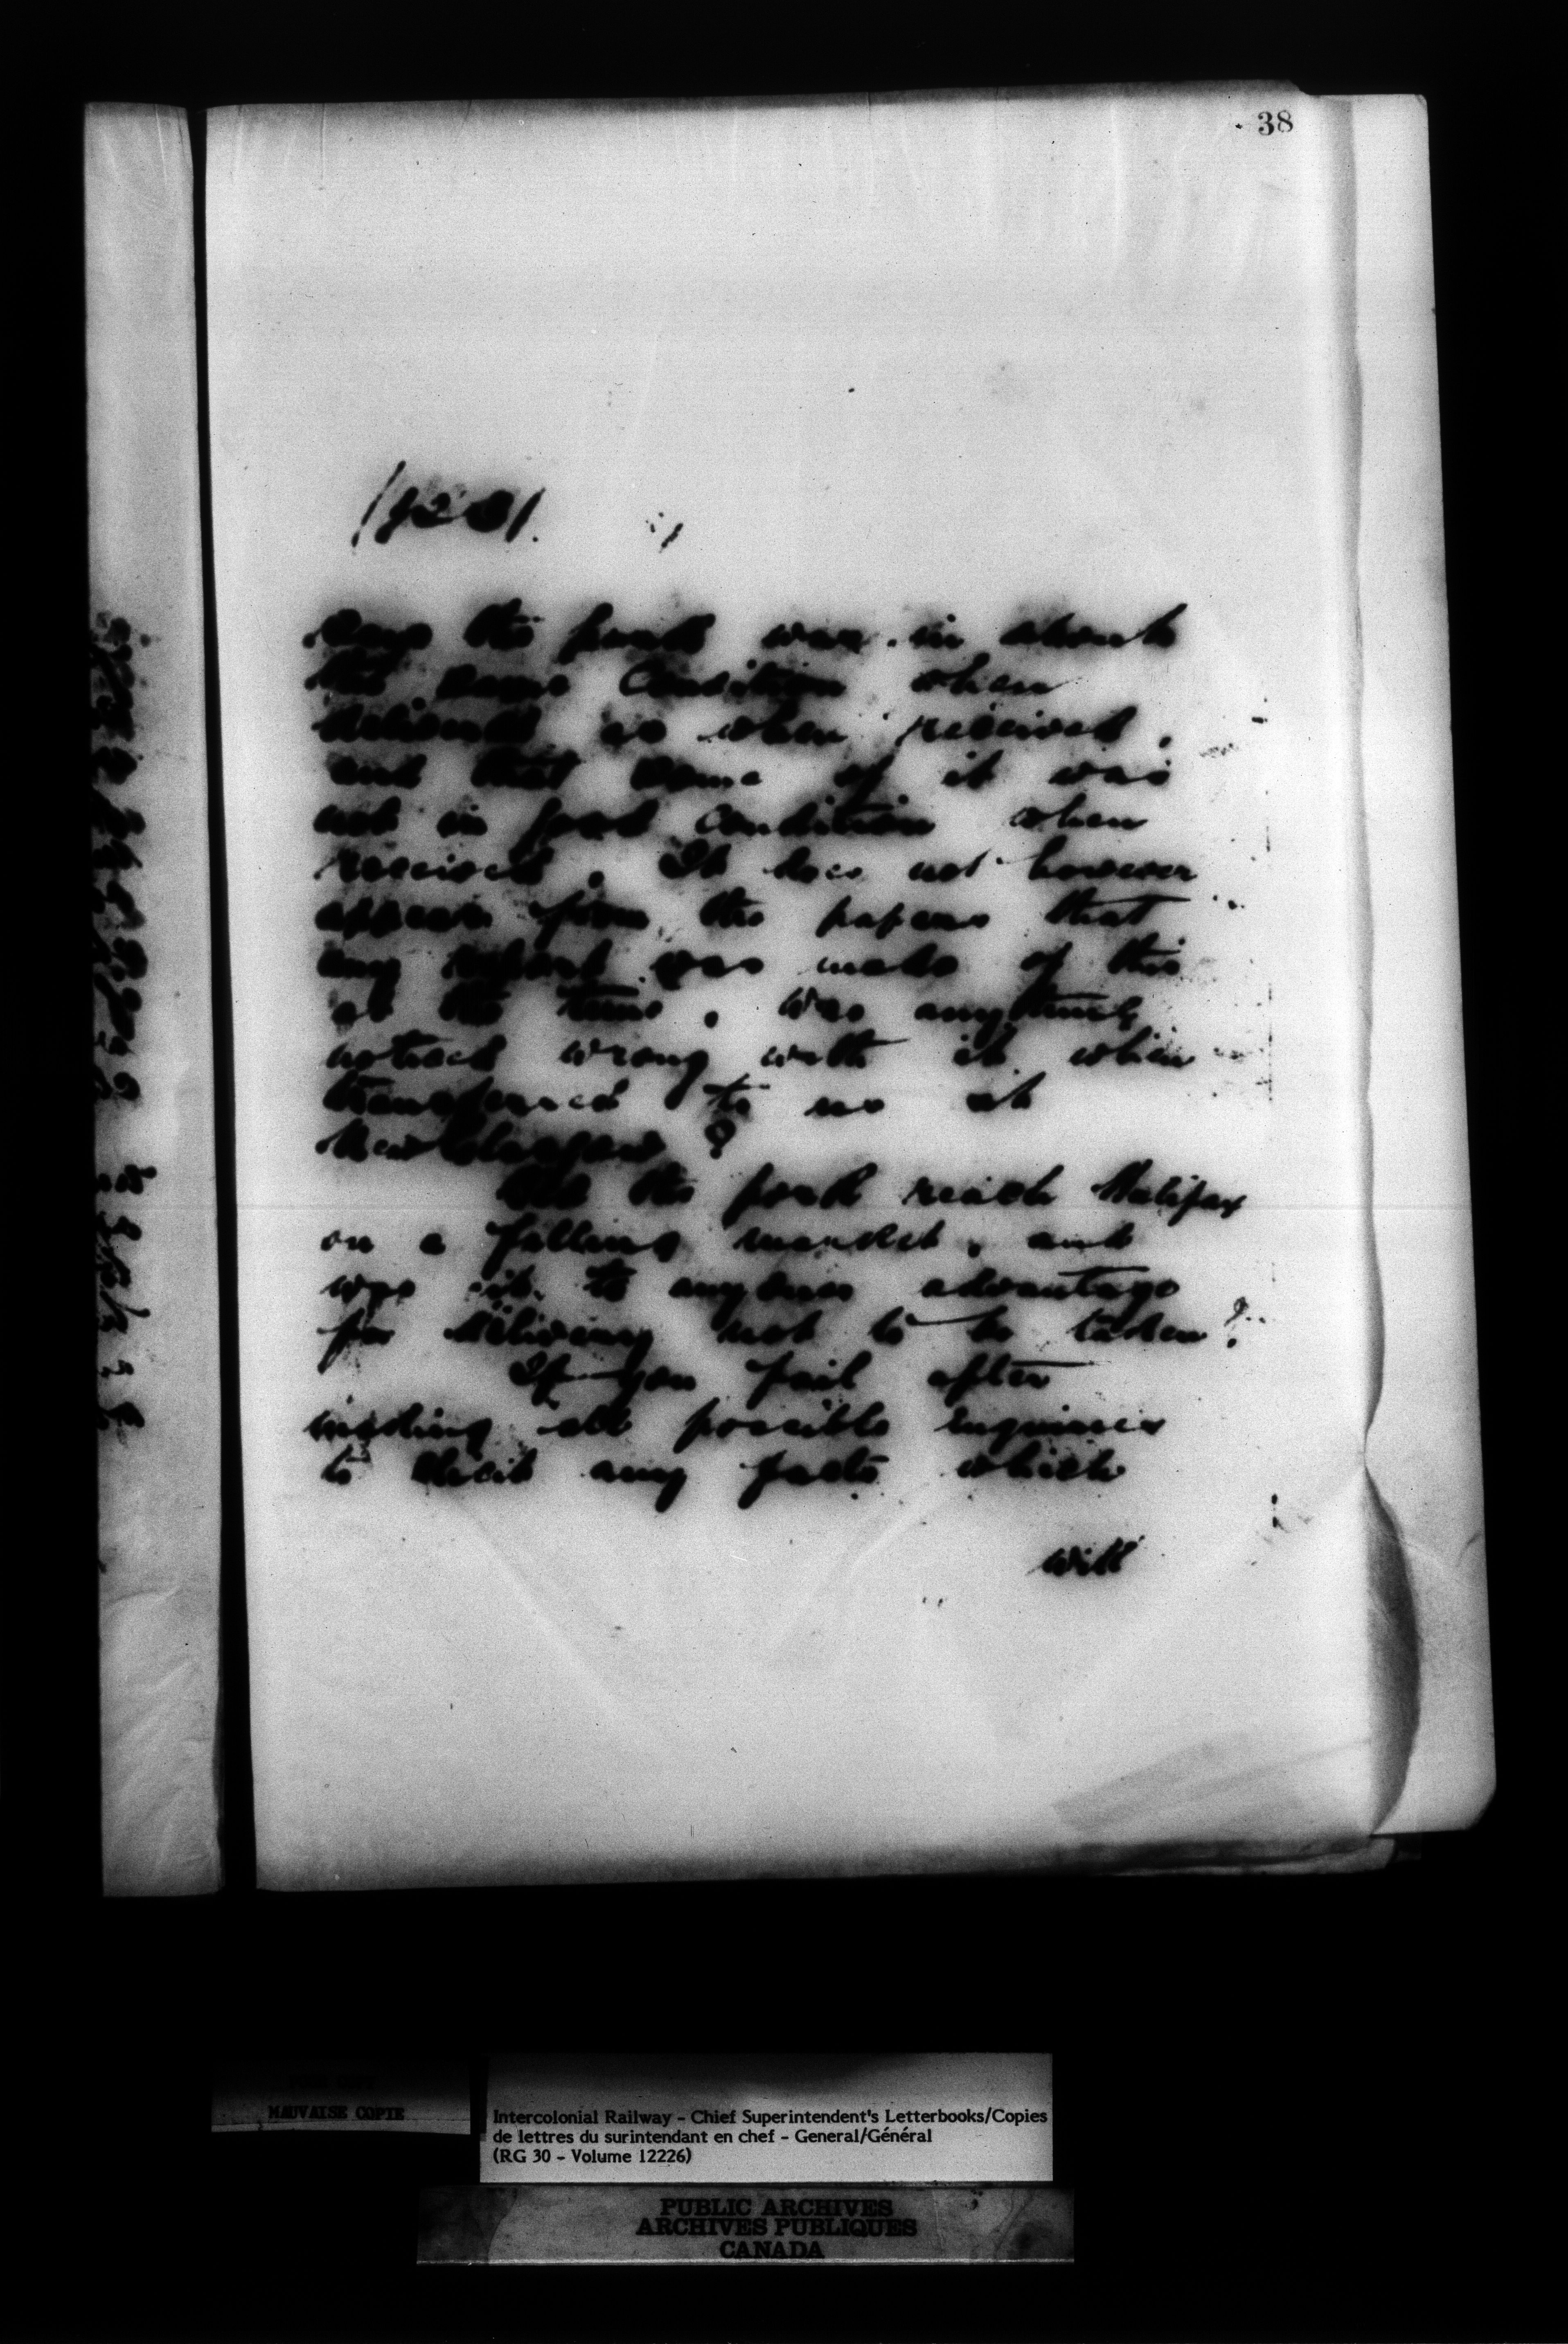 38
says the pork was in about
the same condition when
delivered as when received,
and that some of it was
not in good condition when
received. It does not however
appear from the papers that
any report was made of this
at the time. Was anything
noticed wrong with it when
transferred to us at
New Glasgow?
Did the pork reach Halifax
on a falling market, and
was it to anyones advantage
for delivery not to be taken?
If you fail after
making all possible enquiries
to elicit any facts which
will
MAUVAISE COPIE
Intercolonial Railway - Chief Superintendent's Letterbooks/Copies
de lettres du surintendant en chef - General/Général
(RG 30 - Volume 12226)
PUBLIC ARCHIVES
ARCHIVES PUBLIQUES
CANADA